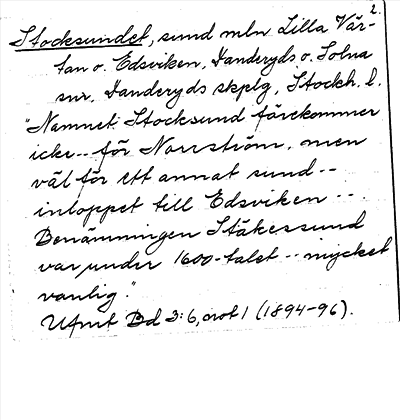 2.
Stocksundet, sund mln Lilla Vär-
tan o. Edsviken, Danderyds o. Solna
snr, Danderyds skplg, Stockh. l.
"Namnet Stocksund förekommer
icke -- för Norrström, men
väl för ett annat sund --
inloppet till Edsviken --.
Benämningen Stäkessund
var under 1600-talet -- mycket
vanlig."
Ufmt Bd 3:6, not 1 (1894-96).